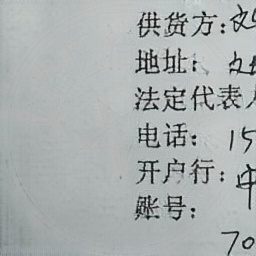 供货方:
地址:
法定代表人
电话: 15
开户行: 中
账号:
70